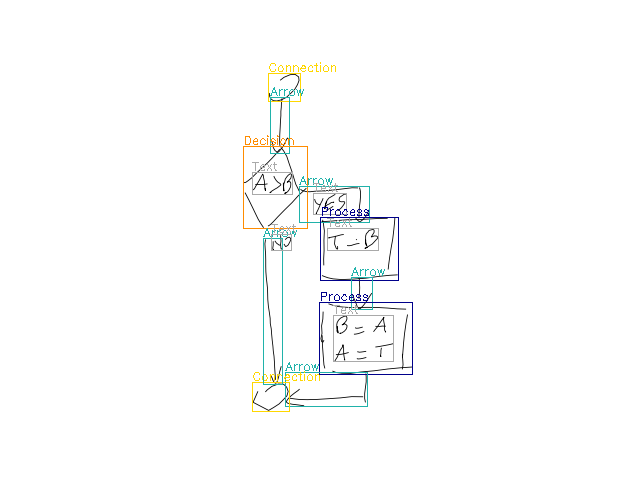 Connection
Arrow
Decision
Text
A>B
Arrow
Text
YES
Process
Text
T=B
Text
NO
Arrow
Arrow
Process
Text
B=A
A=T
Arrow
Connection